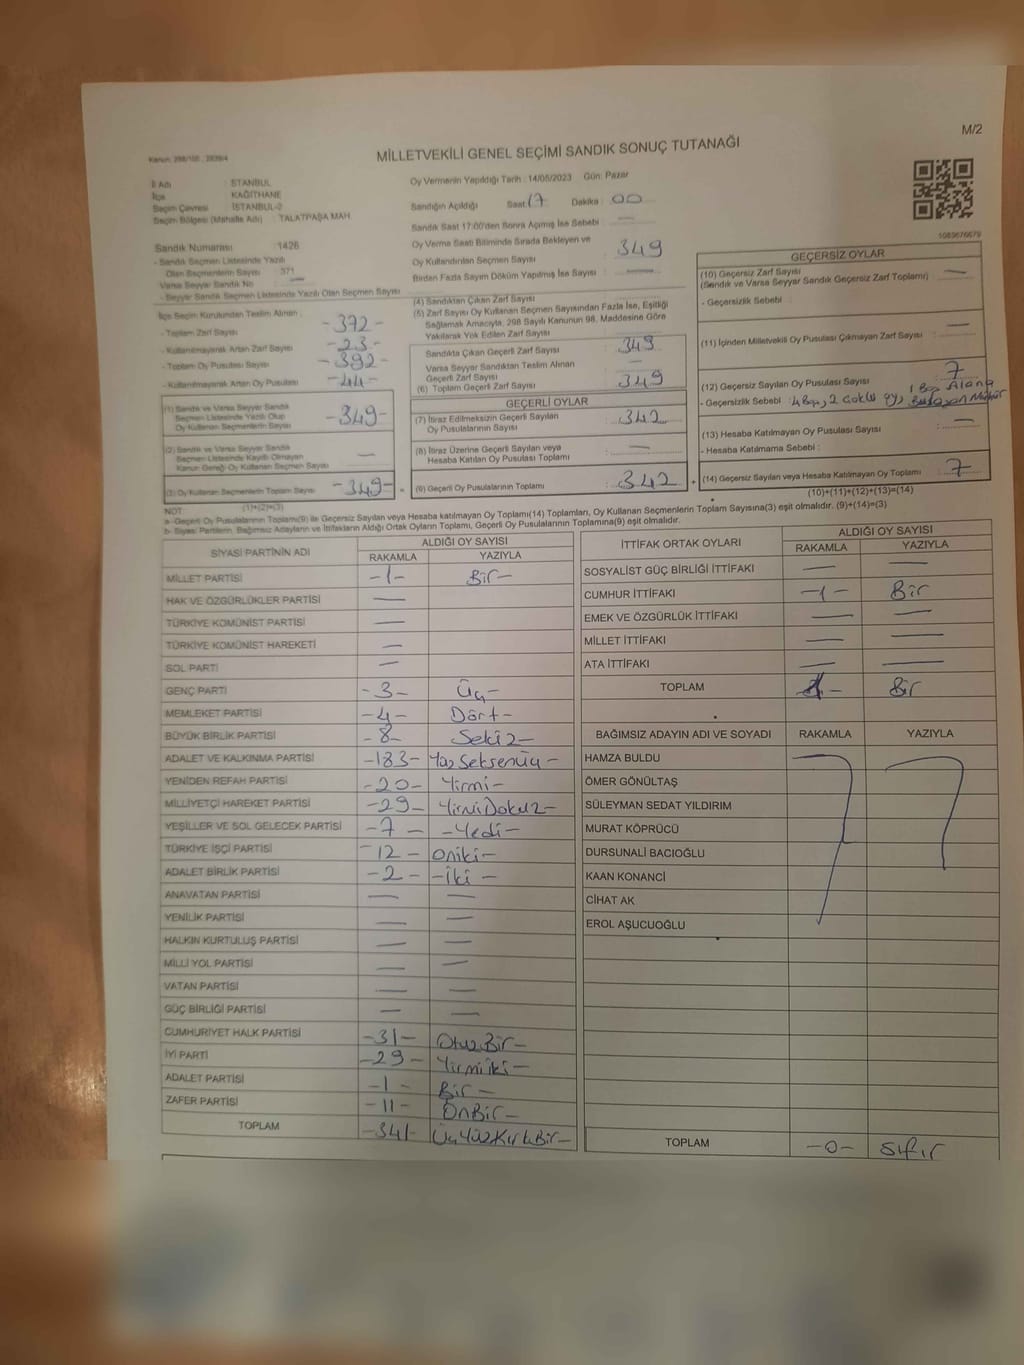 Kanun: 298/105 , 2839/4
M/2
MİLLETVEKİLİ GENEL SEÇİMİ SANDIK SONUÇ TUTANAĞI
İl Adı : İSTANBUL
İlçe : KAĞITHANE
Seçim Çevresi : İSTANBUL-2
Seçim Bölgesi (Mahalle Adı) : TALATPAŞA MAH.
Sandık Numarası : 1426
- Sandık Seçmen Listesinde Yazılı
Olan Seçmenlerin Sayısı : 371
Varsa Seyyar Sandık No :
- Seyyar Sandık Seçmen Listesinde Yazılı Olan Seçmen Sayısı
Oy Vermenin Yapıldığı Tarih : 14/05/2023 Gün: Pazar
Sandığın Açıldığı Saat: 17 Dakika : 00
Sandık Saat 17:00'den Sonra Açılmış İse Sebebi : —
Oy Verme Saati Bitiminde Sırada Bekleyen ve
Oy Kullandırılan Seçmen Sayısı : 349
Birden Fazla Sayım Döküm Yapılmış İse Sayısı : —
İlçe Seçim Kurulundan Teslim Alınan :
- Toplam Zarf Sayısı -372-
- Kullanılmayarak Artan Zarf Sayısı -23-
- Toplam Oy Pusulası Sayısı -392-
- Kullanılmayarak Artan Oy Pusulası -44-
(1) Sandık ve Varsa Seyyar Sandık
Seçmen Listesinde Yazılı Olup
Oy Kullanan Seçmenlerin Sayısı -349-
(2) Sandık ve Varsa Seyyar Sandık
Seçmen Listesinde Kayıtlı Olmayan
Kanun Gereği Oy Kullanan Seçmen Sayısı —
(3) Oy Kullanan Seçmenlerin Toplam Sayısı -349-
(1)+(2)=(3)
(4) Sandıktan Çıkan Zarf Sayısı
(5) Zarf Sayısı Oy Kullanan Seçmen Sayısından Fazla İse, Eşitliği
Sağlamak Amacıyla, 298 Sayılı Kanunun 98. Maddesine Göre
Yakılarak Yok Edilen Zarf Sayısı : —
Sandıkta Çıkan Geçerli Zarf Sayısı : 349
Varsa Seyyar Sandıktan Teslim Alınan
Geçerli Zarf Sayısı : —
(6) Toplam Geçerli Zarf Sayısı : 349
GEÇERLİ OYLAR
(7) İtiraz Edilmeksizin Geçerli Sayılan
Oy Pusulalarının Sayısı : 342
(8) İtiraz Üzerine Geçerli Sayılan veya
Hesaba Katılan Oy Pusulası Toplamı : —
(9) Geçerli Oy Pusulalarının Toplamı : 342
1083676679
GEÇERSİZ OYLAR
(10) Geçersiz Zarf Sayısı : —
(Sandık ve Varsa Seyyar Sandık Geçersiz Zarf Toplamı)
- Geçersizlik Sebebi :
(11) İçinden Milletvekili Oy Pusulası Çıkmayan Zarf Sayısı : —
(12) Geçersiz Sayılan Oy Pusulası Sayısı : 7
- Geçersizlik Sebebi : 4 Boş, 2 Çoklu oy, 1 Boş Alana
(13) Hesaba Katılmayan Oy Pusulası Sayısı : —
- Hesaba Katılmama Sebebi :
(14) Geçersiz Sayılan veya Hesaba Katılmayan Oy Toplamı : 7
(10)+(11)+(12)+(13)=(14)
NOT:
a- Geçerli Oy Pusulalarının Toplamı(9) ile Geçersiz Sayılan veya Hesaba katılmayan Oy Toplamı(14) Toplamları, Oy Kullanan Seçmenlerin Toplam Sayısına(3) eşit olmalıdır. (9)+(14)=(3)
b- Siyasi Partilerin, Bağımsız Adayların ve İttifakların Aldığı Ortak Oyların Toplamı, Geçerli Oy Pusulalarının Toplamına(9) eşit olmalıdır.
SİYASİ PARTİNİN ADI ALDIĞI OY SAYISI
RAKAMLA YAZIYLA
MİLLET PARTİSİ -1- Bir-
HAK VE ÖZGÜRLÜKLER PARTİSİ —
TÜRKİYE KOMÜNİST PARTİSİ —
TÜRKİYE KOMÜNİST HAREKETİ —
SOL PARTİ —
GENÇ PARTİ -3- Üç-
MEMLEKET PARTİSİ -4- Dört-
BÜYÜK BİRLİK PARTİSİ -8- Sekiz-
ADALET VE KALKINMA PARTİSİ -183- Yüz Seksenüç-
YENİDEN REFAH PARTİSİ -20- Yirmi-
MİLLİYETÇİ HAREKET PARTİSİ -29- YirmiDokuz-
YEŞİLLER VE SOL GELECEK PARTİSİ -7- -Yedi-
TÜRKİYE İŞÇİ PARTİSİ -12- Oniki-
ADALET BİRLİK PARTİSİ -2- -İki-
ANAVATAN PARTİSİ — —
YENİLİK PARTİSİ — —
HALKIN KURTULUŞ PARTİSİ — —
MİLLİ YOL PARTİSİ — —
VATAN PARTİSİ — —
GÜÇ BİRLİĞİ PARTİSİ — —
CUMHURİYET HALK PARTİSİ -31- Otuz Bir-
İYİ PARTİ -29- Yirmi iki-
ADALET PARTİSİ -1- Bir-
ZAFER PARTİSİ -11- OnBir-
TOPLAM -341- Üç Yüz Kırk Bir-
İTTİFAK ORTAK OYLARI ALDIĞI OY SAYISI
RAKAMLA YAZIYLA
SOSYALİST GÜÇ BİRLİĞİ İTTİFAKI — —
CUMHUR İTTİFAKI -1- Bir
EMEK VE ÖZGÜRLÜK İTTİFAKI — —
MİLLET İTTİFAKI — —
ATA İTTİFAKI — —
TOPLAM 1- Bir
BAĞIMSIZ ADAYIN ADI VE SOYADI RAKAMLA YAZIYLA
HAMZA BULDU
ÖMER GÖNÜLTAŞ
SÜLEYMAN SEDAT YILDIRIM
MURAT KÖPRÜCÜ
DURSUNALİ BACIOĞLU
KAAN KONANCİ
CİHAT AK
EROL AŞUCUOĞLU
TOPLAM -0- Sıfır